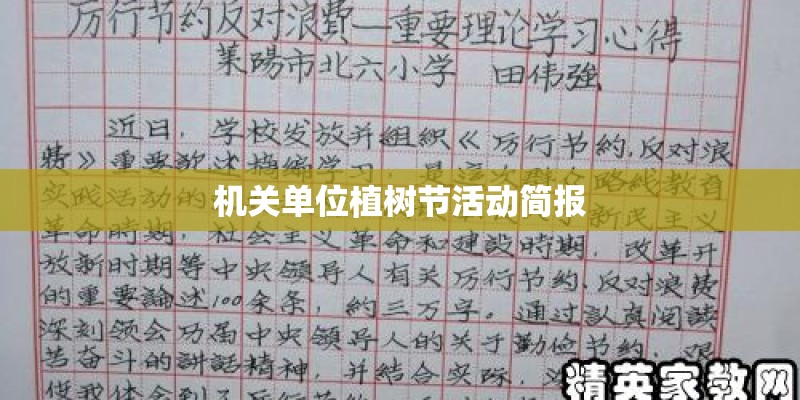 厉行节约反对浪費—重要理论学习心得
莱陽市北六小学 田伟強
近日，学校发放并組织《厉行节約，反对浪
費》重要論述摘编学习，是這次群众路线教育
实践活动的
机关单位植树节活动简报
新民主义
革命時期，社会主义革命和建設時期，改革开
放新时期等中央領导人有关厉行节約、反对浪費
的重要論述100余条，約三万字。通过認真阅读
深刻领会历届中央領导人的关于勤俭节約、艰
苦奋斗的講話精神，并結合实际，深
使我体会到了厉行节約
精英家教网